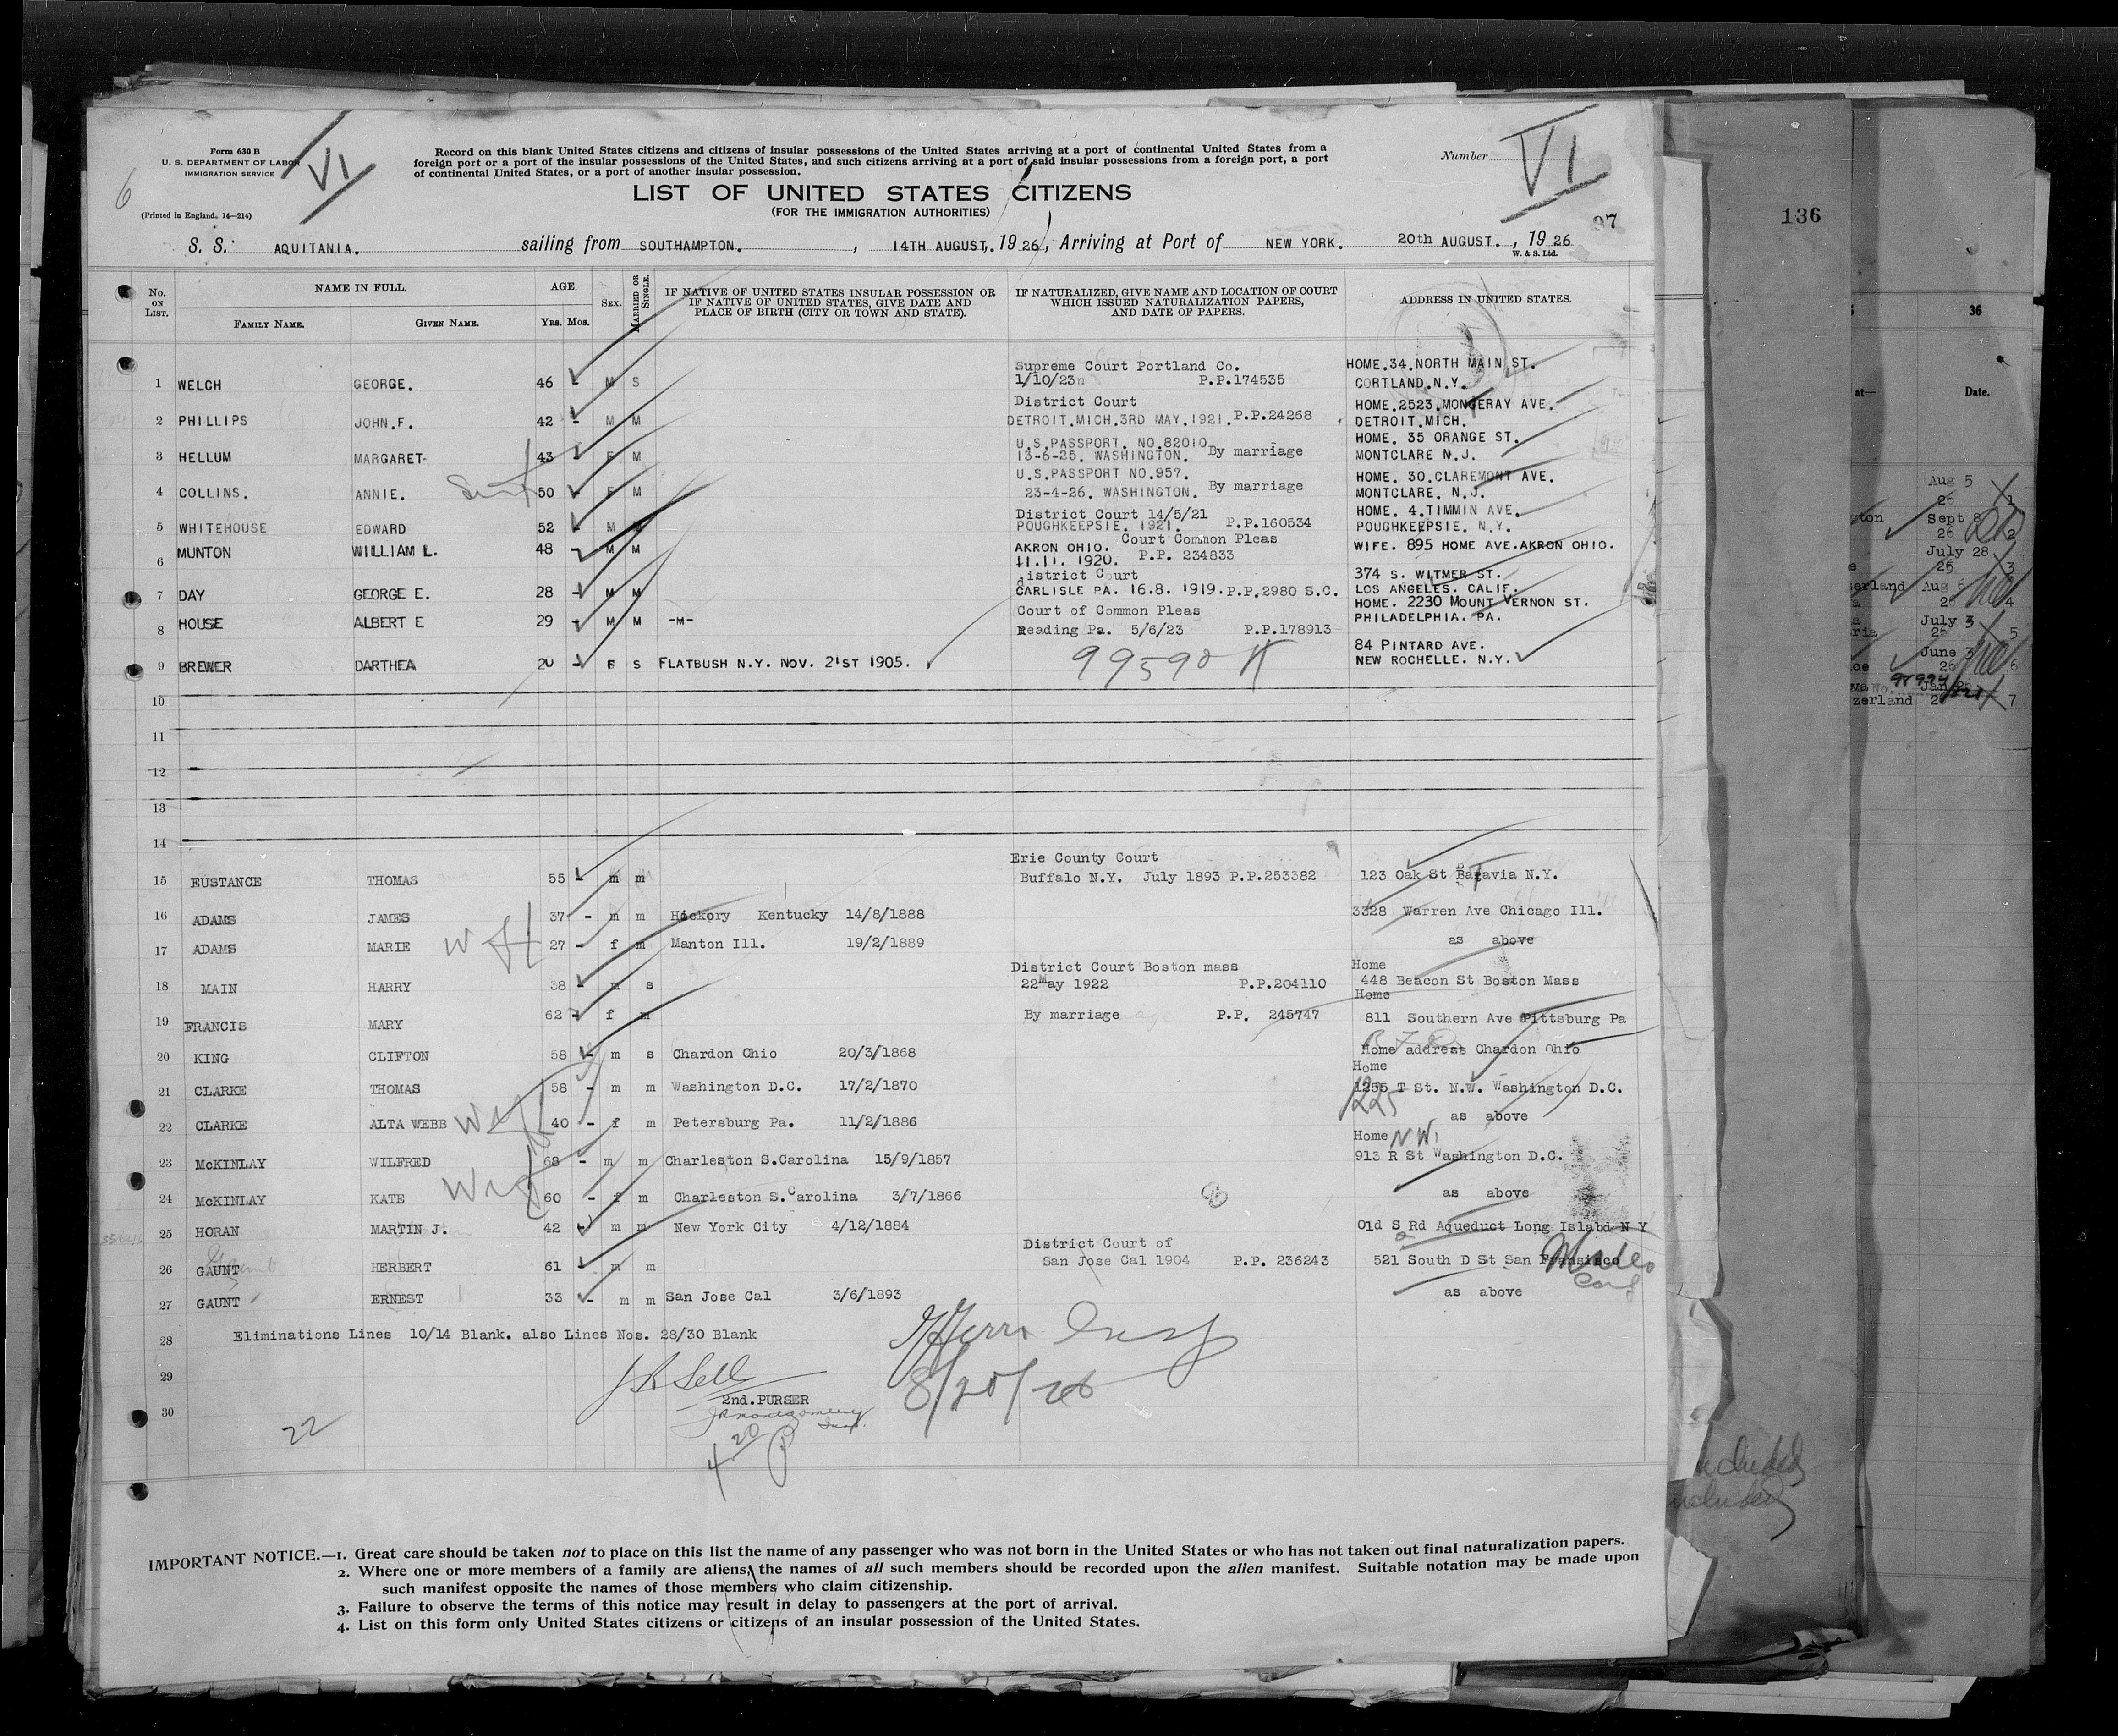 Form 630 B
U. S. DEPARTMENT OF LABOR
IMMIGRATION SERVICE
(Printed in England. 14—214)
6
VI
Record on this blank United States citizens and citizens of insular possessions of the United States arriving at a port of continental United States from a
foreign port or a port of the insular possessions of the United States, and such citizens arriving at a port of said insular possessions from a foreign port, a port
of continental United States, or a port of another insular possession.
Number
VI
LIST OF UNITED STATES CITIZENS
(FOR THE IMMIGRATION AUTHORITIES)
97
S. S. AQUITANIA. sailing from SOUTHAMPTON. , 14TH AUGUST, 1926, Arriving at Port of NEW YORK. 20th AUGUST. , 1926
W. & S. Ltd.
No. ON LIST. NAME IN FULL. AGE. SEX. MARRIED OR SINGLE.
FAMILY NAME. GIVEN NAME. YRS. MOS.
IF NATIVE OF UNITED STATES INSULAR POSSESSION OR
IF NATIVE OF UNITED STATES, GIVE DATE AND
PLACE OF BIRTH (CITY OR TOWN AND STATE).
IF NATURALIZED, GIVE NAME AND LOCATION OF COURT
WHICH ISSUED NATURALIZATION PAPERS,
AND DATE OF PAPERS.
ADDRESS IN UNITED STATES.
Supreme Court Portland Co. HOME.34.NORTH MAIN ST.
1 WELCH GEORGE. 46 - M S 1/10/23 P.P.174535 CORTLAND.N.Y.
District Court HOME.2523.MONGERAY AVE.
2 PHILLIPS JOHN.F. 42 - M M DETROIT.MICH.3RD MAY.1921. P.P.24268 DETROIT.MICH.
U.S.PASSPORT. NO.82010 HOME. 35 ORANGE ST.
3 HELLUM MARGARET- 43 - F M 13-6-25. WASHINGTON. By marriage MONTCLARE N.J.
U.S.PASSPORT NO.957. HOME. 30.CLAREMONT AVE.
4 COLLINS. ANNIE. 50 - F M 23-4-26. WASHINGTON. By marriage MONTCLARE. N.J.
District Court 14/5/21 HOME. 4.TIMMIN AVE.
5 WHITEHOUSE EDWARD 52 - M M POUGHKEEPSIE. 1921. P.P.160534 POUGHKEEPSIE. N.Y.
Court Common Pleas
6 MUNTON WILLIAM L. 48 - M M AKRON OHIO. WIFE. 895 HOME AVE.AKRON OHIO.
11.11. 1920. P.P. 234833
district Court 374 S. WITMER ST.
7 DAY GEORGE E. 28 - M M CARLISLE PA. 16.8. 1919.P.P.2980 S.C. LOS ANGELES. CALIF.
Court of Common Pleas HOME. 2230 MOUNT VERNON ST.
8 HOUSE ALBERT E 29 - M M -M- Reading Pa. 5/6/23 P.P.178913 PHILADELPHIA. PA.
84 PINTARD AVE.
9 BREWER DARTHEA 20 - F S FLATBUSH N.Y. NOV. 21ST 1905. 99590 NEW ROCHELLE. N.Y.
10
11
12
13
14
Erie County Court
15 EUSTANCE THOMAS 55 - m m Buffalo N.Y. July 1893 P.P.253382 123 Oak St Batavia N.Y.
16 ADAMS JAMES 37 - m m Hickory Kentucky 14/8/1888 3328 Warren Ave Chicago Ill.
17 ADAMS MARIE 27 - f m Manton Ill. 19/2/1889 as above
District Court Boston mass Home
18 MAIN HARRY 38 - m s 22 May 1922 P.P.204110 448 Beacon St Boston Mass
Home
19 FRANCIS MARY 62 - f m By marriage P.P. 245747 811 Southern Ave Pittsburg Pa
20 KING CLIFTON 58 - m s Chardon Ohio 20/3/1868 Home address Chardon Ohio
Home
21 CLARKE THOMAS 58 - m m Washington D.C. 17/2/1870 1255 T St. N.W. Washington D.C.
1225
22 CLARKE ALTA WEBB 40 - f m Petersburg Pa. 11/2/1886 as above
Home N W.
23 McKINLAY WILFRED 68 - m m Charleston S.Carolina 15/9/1857 913 R St Washington D.C.
24 McKINLAY KATE 60 - f m Charleston S.Carolina 3/7/1866 as above
25 HORAN MARTIN J. 42 - m m New York City 4/12/1884 Old S Rd Aqueduct Long Islabd N Y
District Court of
26 GAUNT HERBERT 61 - m m San Jose Cal 1904 P.P. 236243 521 South D St San Fransisco
Mateo
27 GAUNT ERNEST 33 - m m San Jose Cal 3/6/1893 as above
28 Eliminations Lines 10/14 Blank. also Lines Nos. 28/30 Blank
29
2nd.PURSER
8/20/26
30
22
IMPORTANT NOTICE.—1. Great care should be taken not to place on this list the name of any passenger who was not born in the United States or who has not taken out final naturalization papers.
2. Where one or more members of a family are aliens, the names of all such members should be recorded upon the alien manifest. Suitable notation may be made upon
such manifest opposite the names of those members who claim citizenship.
3. Failure to observe the terms of this notice may result in delay to passengers at the port of arrival.
4. List on this form only United States citizens or citizens of an insular possession of the United States.
136
36
at—
Date.
Aug 5
26 1
Sept 8
26 2
July 28
25 3
Aug 6
26 4
July 3
26 5
June 3
26 6
Jan 26
zerland 7